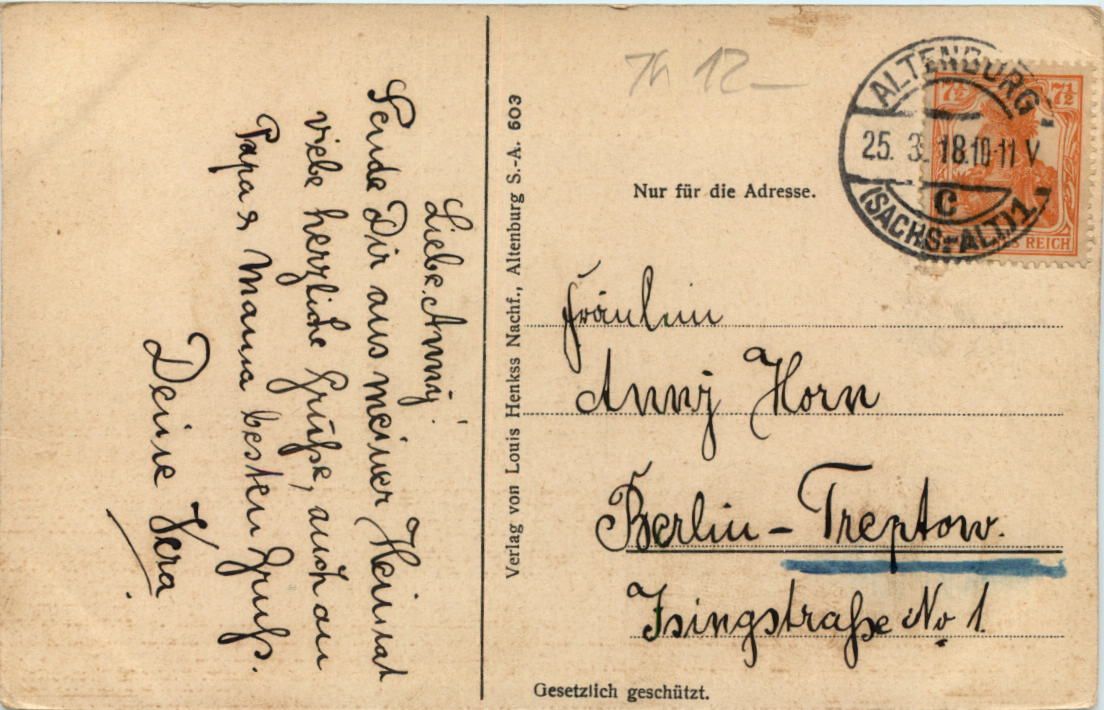 Liebe Anny!
Sende Dir aus meiner Heimat
viele herzliche Grüße, auch an
Papa & Mama besten Gruß.
Deine Vera
Verlag von Louis Henkss Nachf., Altenburg S.-A. 503
Th 12 –
Nur für die Adresse.
ALTENBURG
25. 3. 18. 10-11 V
C
(SACHS-ALT.) 1
7½ 7½
REICH
Fräulein
Anny Horn
Berlin – Treptow.
Isingstraße No 1.
Gesetzlich geschützt.